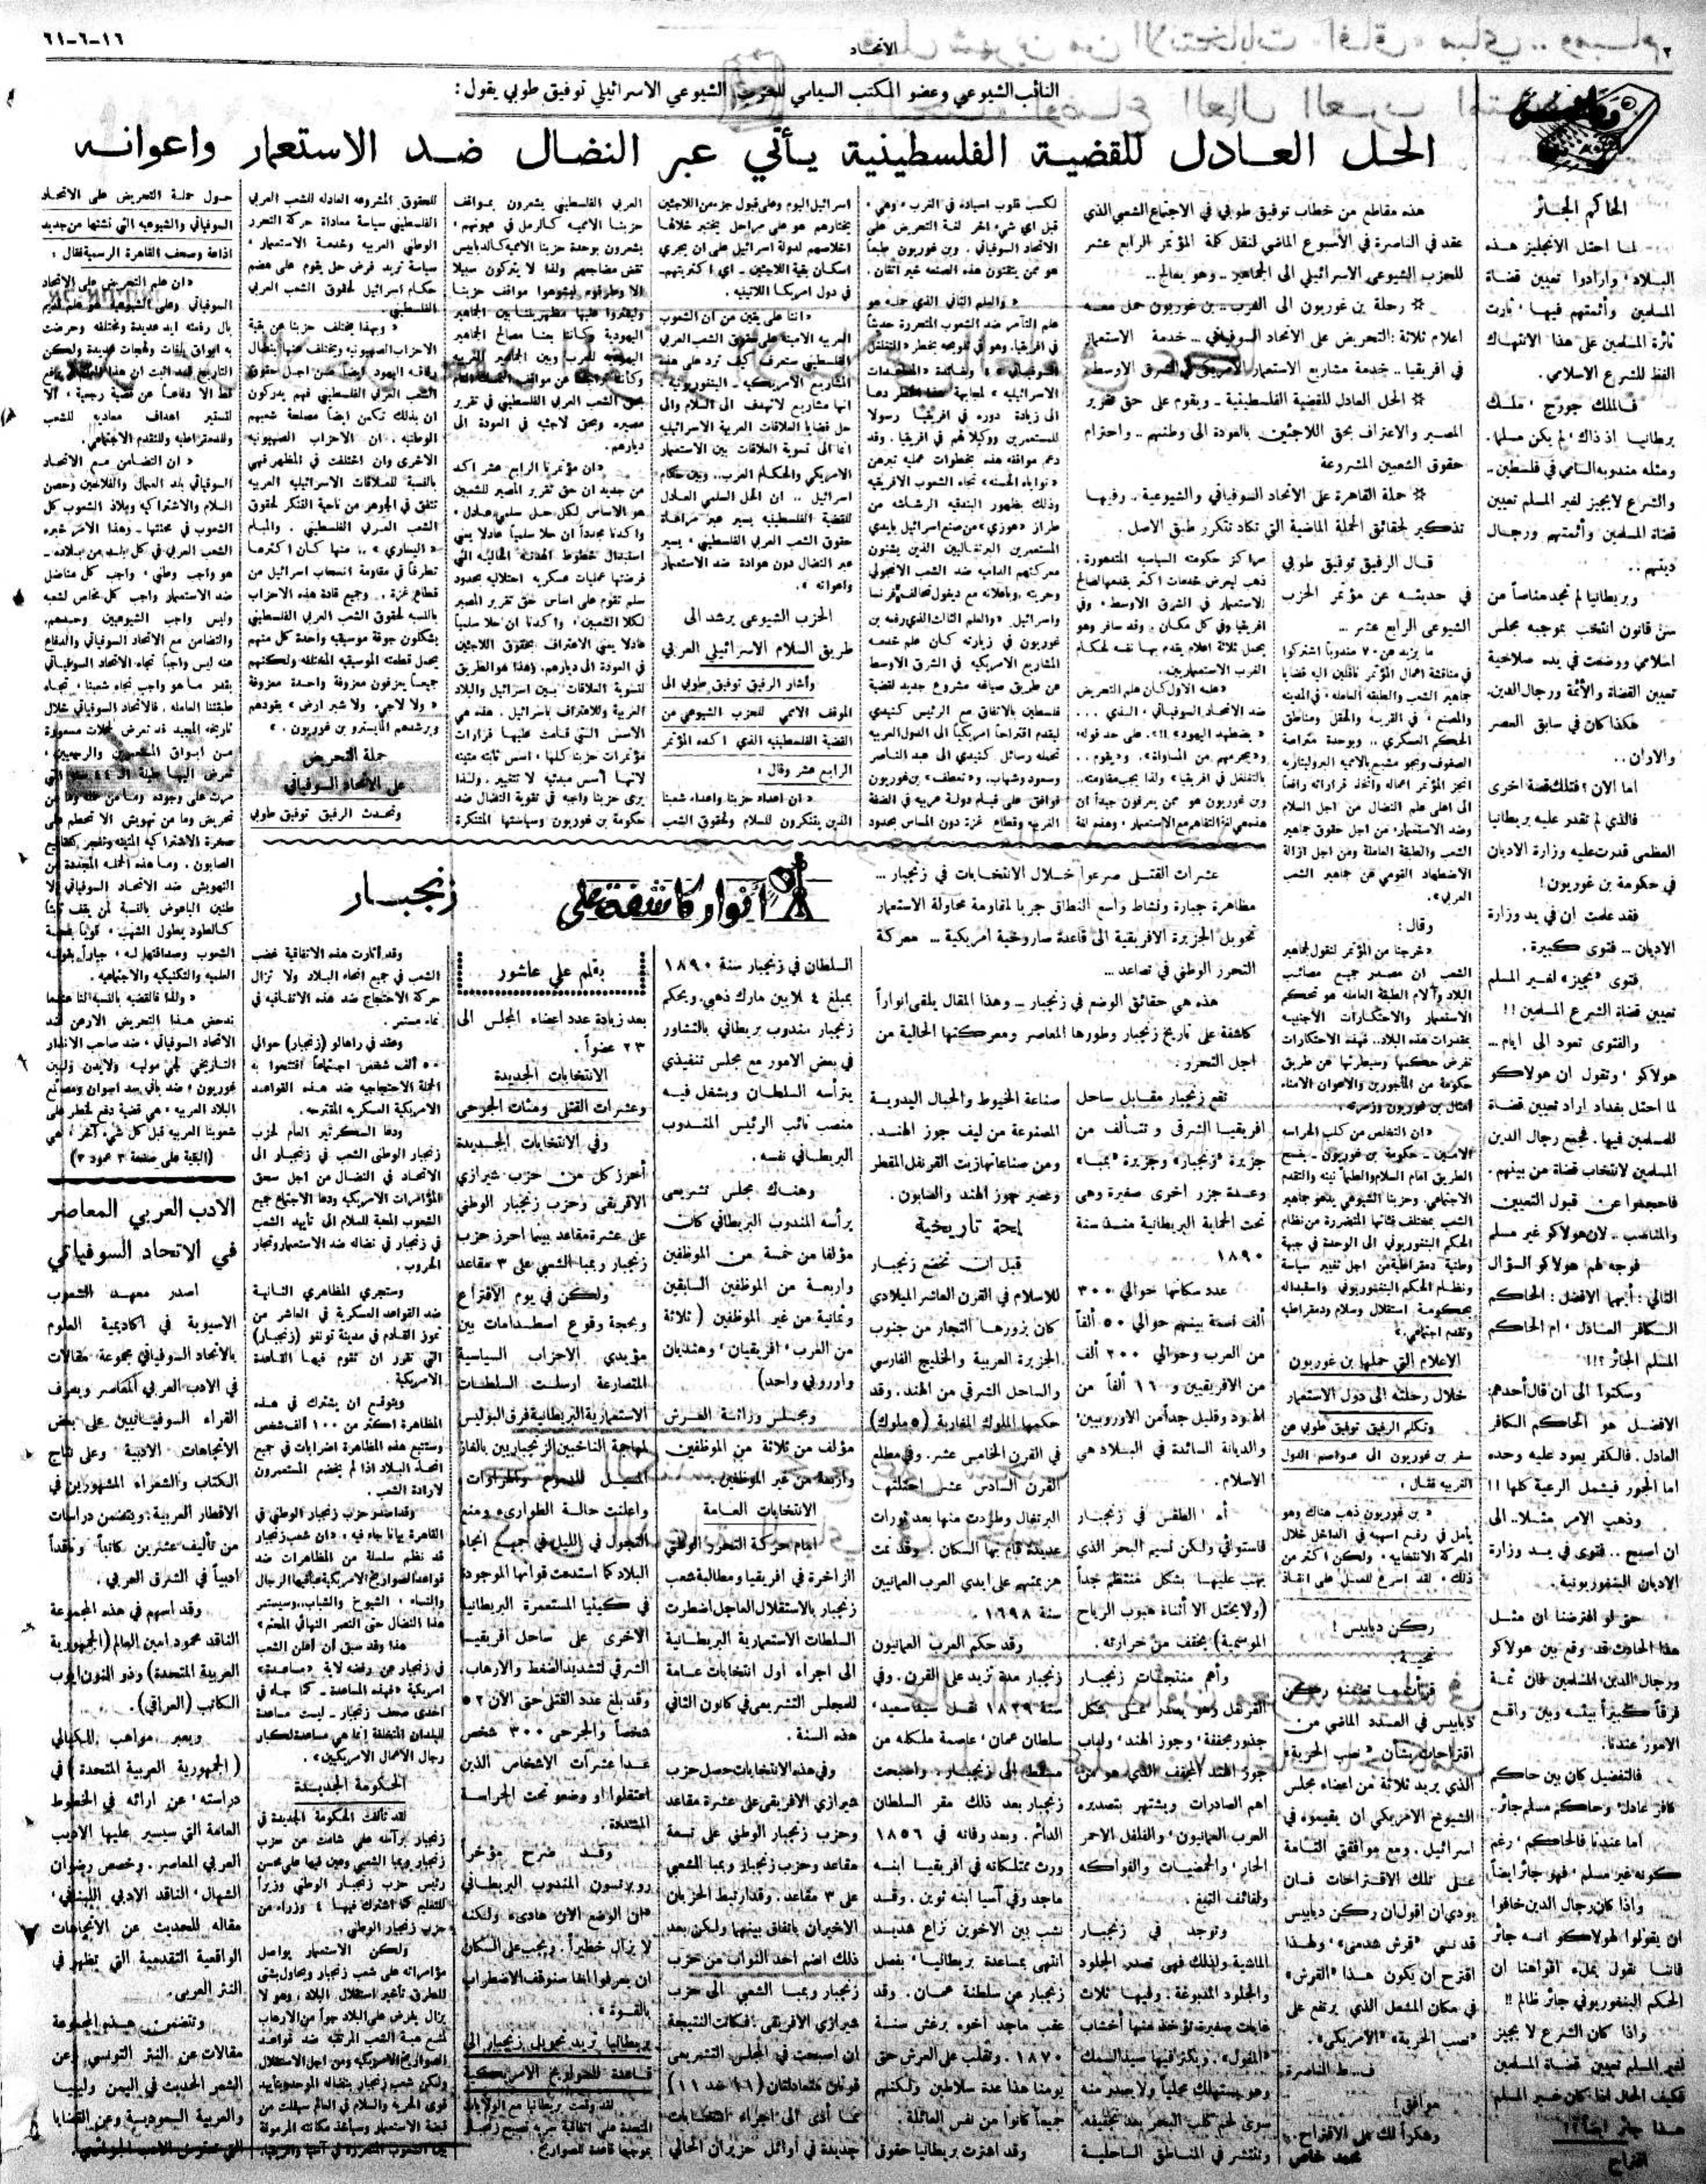 ٢
الاتحاد
١٦-٦-٦١
النائب الشيوعي وعضو المكتب السياسي للحزب الشيوعي الاسرائيلي توفيق طوبي يقول:
الحل العادل للقضية الفلسطينية يأتي عبر النضال ضد الاستعمار واعوانه
الحاكم الجائر
لما احتل الانجليز هذه
البلاد، وارادوا تعيين قضاة
المسلمين وأئمتهم فيها، ثارت
ثائرة المسلمين على هذا الانتهاك
الفظ للشرع الاسلامي.
فالملك جورج، ملك
بريطانيا اذ ذاك، لم يكن مسلما.
ومثله مندوبه السامي في فلسطين..
والشرع لا يجيز لغير المسلم تعيين
قضاة المسلمين وأئمتهم ورجال
دينهم..
وبريطانيا لم تجد مناصاً من
سن قانون انتخب بموجبه مجلس
اسلامي ووضعت في يده صلاحية
تعيين القضاة والأئمة ورجال الدين.
هكذا كان في سابق العصر
والاوان..
اما الآن؟ فتلك قصة اخرى
فالذي لم تقدر عليه بريطانيا
العظمى قدرت عليه وزارة الاديان
في حكومة بن غوريون!
فقد علمت ان في يد وزارة
الاديان ... فتوى كبيرة.
فتوى "تجيز" لغير المسلم
تعيين قضاة الشرع المسلمين!!
والفتوى تعود الى ايام...
هولاكو، وتقول ان هولاكو
لما احتل بغداد اراد تعيين قضاة
للمسلمين فيها. فجمع رجال الدين
المسلمين لانتخاب قضاة من بينهم.
فاحجموا عن قبول التعيين
والمناصب.. لان هولاكو غير مسلم
فوجه لهم هولاكو السؤال
التالي: أيهما الافضل: الحاكم
الكافر العادل، ام الحاكم
المسلم الجائر؟!!
وسكتوا الى ان قال أحدهم:
الافضل هو الحاكم الكافر
العادل. فالكفر يعود عليه وحده
اما الجور فيشمل الرعية كلها!!
وذهب الامر مثلا.. الى
ان اصبح.. فتوى في يد وزارة
الاديان البنغوريونية.
حتى لو افترضنا ان مثل
هذا الحادث قد وقع بين هولاكو
ورجال الدين المسلمين فان ثمة
فرقاً كبيراً بينه وبين واقع
الامور عندنا.
فالتفضيل كان بين حاكم
كافر عادل، وحاكم مسلم جائر..
أما عندنا فالحاكم، رغم
كونه غير مسلم، فهو جائر ايضاً
واذا كان رجال الدين خافوا
ان يقولوا لهولاكو انه جائر
فاننا نقول بملء افواهنا ان
الحكم البنغوريوني جائر ظالم!!
واذا كان الشرع لا يجيز
لغير المسلم تعيين قضاة المسلمين
فكيف الحال اذا كان غير المسلم
هذا جائر ايضاً؟!
اقتراح
هذه مقاطع من خطاب توفيق طوبي في الاجتماع الشعبي الذي
عقد في الناصرة في الاسبوع الماضي لنقل كلمة المؤتمر الرابع عشر
للحزب الشيوعي الاسرائيلي الى الجماهير.. وهو يعالج..
* رحلة بن غوريون الى الغرب.. بن غوريون حمل معه
اعلام ثلاثة: التحريض على الاتحاد السوفياتي... خدمة الاستعمار
في أفريقيا.. خدمة مشاريع الاستعمار الامريكي في الشرق الاوسط.
* الحل العادل للقضية الفلسطينية.. ويقوم على حق تقرير
المصير والاعتراف بحق اللاجئين بالعودة الى وطنهم.. واحترام
حقوق الشعبين المشروعة
* حملة القاهرة على الاتحاد السوفياتي والشيوعية.. وفيها
تذكير لحقائق الحملة الماضية التي تكاد تتكرر طبق الاصل.
قال الرفيق توفيق طوبي
في حديثه عن مؤتمر الحزب
الشيوعي الرابع عشر...
ما يزيد عن ٧٠٠ مندوباً اشتركوا
في مناقشة اعمال المؤتمر ناقلين اليه قضايا
جماهير الشعب والطبقة العاملة، في المدينه
والمصنع، في القرية والحقل ومناطق
الحكم العسكري.. وبوحدة متراصة
الصفوف وبجو مشبع بالامميه البروليتاريه
انجز المؤتمر اعماله واتخذ قراراته رافعاً
الى اعلى علم النضال من اجل السلام
وضد الاستعمار، من اجل حقوق جماهير
الشعب والطبقة العاملة ومن اجل ازالة
الاضطهاد القومي عن جماهير الشعب
العربي.
وقال:
«خرجنا من المؤتمر لنقول لجماهير
الشعب ان مصدر جميع مصائب
البلاد وآلام الطبقة العامله هو تحكم
الاستعمار والاحتكارات الاجنبية
بمقدرات هذه البلاد.. فهذه الاحتكارات
تفرض حكمها وسيطرتها عن طريق
حكومة من المأجورين والاعوان الامناء
امثال بن غوريون وزمرته.
«ان التخلص من كلب الحراسه
الامين - حكومة بن غوريون - يفتح
الطريق امام السلام والطمأنينه والتقدم
الاجتماعي. وحزبنا الشيوعي يدعو جماهير
الشعب بمختلف فئاتها المتضررة من نظام
الحكم البنغوريوني الى الوحدة في جبهة
وطنية دمقراطية من اجل تغيير سياسة
ونظام الحكم البنغوريوني واستبداله
بحكومة استقلال وسلام ودمقراطيه
وتقدم اجتماعي.»
الاعلام التي حملها بن غوريون
خلال رحلته الى دول الاستعمار
وتكلم الرفيق توفيق طوبي عن
سفر بن غوريون الى عواصم الدول
الغربيه فقال:
«بن غوريون ذهب هناك وهو
يأمل في رفع اسهمه في الداخل خلال
المعركة الانتخابيه، ولكن اكثر من
ذلك، لقد اسرع للعمل على انقاذ
مراكز حكومته السياسيه المتدهورة.
ذهب ليعرض خدمات اكثر يقدمها لصالح
الاستعمار في الشرق الاوسط، وفي
افريقيا وفي كل مكان. وقد سافر وهو
يحمل ثلاثة اعلام يقدم بها نفسه لحكام
الغرب الاستعماريين.
«علمه الاول كان علم التحريض
ضد الاتحاد السوفياتي، الذي...
«يضطهد اليهود»!!.. على حد قوله،
و«يحرمهم من المساواة».. و«يقوم..
بالتغلغل في افريقيا» ولذا يجب مقاومته..
وبن غوريون هو ممن يعرفون جيداً ان
هذه هي لغة التفاهم مع الاستعمار، وهذه لغة
لكسب قلوب اسياده في الغرب، وهي،
قبل اي شيء اخر لغة التحريض على
الاتحاد السوفياتي. وبن غوريون طبعاً
هو ممن يتقنون هذه الصنعه خير اتقان.
«والعلم الثاني الذي حمله هو
علم التآمر ضد الشعوب المتحررة حديثاً
في افريقيا.
الى زيادة دوره في افريقيا رسولا
للمستعمرين ووكيلا لهم في افريقيا. وقد
دعم مواقفه هذه بخطوات عمليه تبرهن
«نواياه الحسنه» تجاه الشعوب الافريقيه
وذلك بظهور البندقيه الرشاشه من
طراز «عوزي» من صنع اسرائيل بايدي
المستعمرين البرتغاليين الذين يشنون
معركتهم الداميه ضد الشعب الانجولي
وحريته، وباعلانه مع ديغول تحالف فرنسا
واسرائيل. «والعلم الثالث الذي رفعه بن
غوريون في زيارته كان علم خدمة
المشاريع الامريكيه في الشرق الاوسط
عن طريق صياغه مشروع جديد لقضية
فلسطين بالاتفاق مع الرئيس كنيدي
ليقدم اقتراحاً امريكياً الى الدول العربيه
تحمله رسائل كنيدي الى عبد الناصر
وسعود وشهاب. و«تعطف» بن غوريون
فوافق على قيام دولة عربيه في الضفة
الغربيه وقطاع غزة دون المساس بحدود
اسرائيل اليوم وعلى قبول جزء من اللاجئين
يختارهم هو على مراحل يختبر خلالها
اخلاصهم لدولة اسرائيل على ان يجري
اسكان بقية اللاجئين - اي اكثريتهم-
في دول امريكا اللاتينيه.
«اننا على يقين من ان الشعوب
العربيه الامينة على حقوق الشعب العربي
الفلسطيني ستعرف كيف ترد على هذه
المشاريع الامريكيه - البنغوريونيه.
انها مشاريع لا تهدف الى السلام والى
حل قضايا العلاقات العربية الاسرائيلية
انما الى تسوية العلاقات بين الاستعمار
الامريكي والحكام العرب.. وبين حكام
اسرائيل.. ان الحل السلمي العادل
للقضية الفلسطينيه يسير عبر مراعاة
حقوق الشعب العربي الفلسطيني، يسير
عبر النضال دون هوادة ضد الاستعمار
واعوانه»
الحزب الشيوعي يرشد الى
طريق السلام الاسرائيلي العربي
وأشار الرفيق توفيق طوبي الى
الموقف الاممي للحزب الشيوعي من
القضية الفلسطينيه الذي اكده المؤتمر
الرابع عشر وقال:
«ان اعداء حزبنا واعداء شعبنا
الذين يتنكرون للسلام ولحقوق الشعب
العربي الفلسطيني يشعرون بمواقف
حزبنا الامميه كالرمل في عيونهم،
يشعرون بوحدة حزبنا الامميه كالدبابيس
تقض مضاجعهم ولذا لا يتركون سبيلا
الا وطرقوه ليشوهوا مواقف حزبنا
بحق الشعب العربي الفلسطيني في تقرير
مصيره وبحق لاجئيه في العودة الى
ديارهم.
«ان مؤتمرنا الرابع عشر اكد
من جديد ان حق تقرير المصير للشعبين
هو الاساس لكل حل سلمي عادل،
واكدنا مجدداً ان حلا سلمياً عادلا يعني
استبدال خطوط الهدنه الحاليه التي
فرضتها عمليات عسكريه احتلاليه بحدود
سلم تقوم على اساس حق تقرير المصير
لكلا الشعبين، واكدنا ان حلا سلمياً
عادلا يعني الاعتراف بحقوق اللاجئين
في العودة الى ديارهم. وهذا هو الطريق
لتسوية العلاقات بين اسرائيل والبلاد
العربية وللاعتراف باسرائيل. هذه هي
الاسس التي قامت عليها قرارات
مؤتمرات حزبنا كلها، اسس ثابته متينه
لانها أسس مبدئيه لا تتغير. ولذا
يرى حزبنا واجبه في تقوية النضال ضد
حكومة بن غوريون وسياستها المتنكرة
للحقوق المشروعه العادله للشعب العربي
الفلسطيني سياسة معاداة حركة التحرر
الوطني العربيه وخدمة الاستعمار،
سياسة تريد فرض حل يقوم على هضم
حكام اسرائيل لحقوق الشعب العربي
الفلسطيني
«وبهذا يختلف حزبنا عن بقية
الاحزاب الصهيونيه
الشعب العربي الفلسطيني فهم يدركون
ان بذلك تكمن ايضاً مصلحة شعبهم
الوطنيه. ان الاحزاب الصهيونيه
الاخرى وان اختلفت في المظهر فهي
بالنسبة للعلاقات الاسرائيليه العربيه
تتفق في الجوهر من ناحية التنكر لحقوق
الشعب العربي الفلسطيني. والمبام
«اليساري».. منها كان اكثرها
تطرفاً في مقاومة انسحاب اسرائيل من
قطاع غزة.. وجميع قادة هذه الاحزاب
بالنسبه لحقوق الشعب العربي الفلسطيني
يشكلون جوقة موسيقيه واحدة كل منهم
يحمل قطعته الموسيقيه المختلفه ولكنهم
جميعاً يعزفون معزوفة واحدة معزوفة
«ولا لاجيء ولا شبر ارض» يقودهم
ويرشدهم المايسترو بن غوريون.»
حملة التحريض
على الاتحاد السوفياتي
وتحدث الرفيق توفيق طوبي
حول حملة التحريض على الاتحاد
السوفياتي والشيوعيه التي تشنها من جديد
اذاعة وصحف القاهرة الرسمية فقال:
«ان علم التحريض على الاتحاد
السوفياتي وعلى الشيوعيه هو علم قديم
بال رفعته ايد عديدة ومختلفه وحرضت
به ابواق بلغات ولهجات عديدة ولكن
قط الا دفاعاً عن قضية رجعية، الا
لتستير اهداف معاديه للشعب
وللدمقراطيه وللتقدم الاجتماعي.
«ان التضامن مع الاتحاد
السوفياتي بلد العمال والفلاحين وحصن
السلام والاشتراكيه وملاذ الشعوب كل
الشعوب في محنتها - وهذا الامر خبره
الشعب العربي في كل بلد من بلاده -
هو واجب وطني، واجب كل مناضل
ضد الاستعمار واجب كل مخلص لشعبه
وليس واجب الشيوعيين وحدهم.
والتضامن مع الاتحاد السوفياتي والدفاع
عنه ليس واجباً تجاه الاتحاد السوفياتي
بقدر ما هو واجب تجاه شعبنا، تجاه
طبقتنا العامله. فالاتحاد السوفياتي خلال
تاريخه المجيد قد تعرض لحملات مسعورة
مرت على وجوده
تحريض وما من تهويش الا تحطم على
صخرة الاشتراكيه المتينه وتفجر كفقاقيع
الصابون. وما هذه الحمله المتجددة من
التهويش ضد الاتحاد السوفياتي إلا
طنين الباعوض بالنسبة لمن يقف ثابتاً
كالطود يطول الشهب، قوياً بمحبة
الشعوب وصداقتها له، جباراً بقوته
العلميه والتكنيكيه والاجتماعيه.
شعوبنا العربيه قبل كل شيء آخر، هي
(البقية على صفحة ٣ عمود ٣)
أنوار كاشفة على زنجبار
عشرات القتلى صرعوا خلال الانتخابات في زنجبار...
مظاهرة جبارة ونشاط واسع النطاق جريا لمقاومة محاولة الاستعمار
تحويل الجزيرة الافريقية الى قاعدة صاروخية امريكية... معركة
التحرر الوطني في تصاعد...
هذه هي حقائق الوضع في زنجبار - وهذا المقال يلقي انواراً
كاشفة على تاريخ زنجبار وطورها المعاصر ومعركتها الحالية من
اجل التحرر.
بقلم علي عاشور
تقع زنجبار مقابل ساحل
افريقيا الشرقي وتتألف من
جزيرة "زنجبار" وجزيرة "بمبا"
وعدة جزر اخرى صغيرة وهي
تحت الحماية البريطانية منذ سنة
١٨٩٠
عدد سكانها حوالي ٣٠٠
الف نسمة بينهم حوالي ٥٠ ألفاً
من العرب وحوالي ٢٠٠ ألف
من الافريقيين و ١٦ ألفاً من
الهنود وقليل جداً من الاوروبيين،
والديانة السائدة في البلاد هي
الاسلام.
أما الطقس في زنجبار
فاستوائي ولكن نسيم البحر الذي
يهب عليها بشكل منتظم جداً
(ولا يختل الا أثناء هبوب الرياح
الموسمية) يخفف من حرارته.
وأهم منتجات زنجبار
القرنفل وهو يصدر على شكل
جذور مجففة، وجوز الهند، ولباب
جوز الهند المجفف الذي هو من
اهم الصادرات ويشتهر بتصديره
العرب العمانيون، والفلفل الاحمر
الحار، والحمضيات والفواكه
ولفائف التبغ.
وتوجد في زنجبار
الماشية ولذلك فهي تصدر الجلود
والجلود المدبوغة. وفيها ثلاث
غابات صغيرة تؤخذ منها أخشاب
"المنغول". ويكثر فيها صيد السمك
وهو يستهلك محلياً ولا يصدر منه
سوى لحم كلب البحر بعد تجفيفه.
وتنتشر في المناطق الساحلية
صناعة الخيوط والحبال اليدوية
المصنوعة من ليف جوز الهند.
ومن صناعاتها زيت القرنفل المقطر
وعصير جوز الهند والصابون.
لمحة تاريخية
قبل ان تخضع زنجبار
للاسلام في القرن العاشر الميلادي
كان يزورها التجار من جنوب
الجزيرة العربية والخليج الفارسي
والساحل الشرقي من الهند. وقد
حكمها الملوك المغاربة (٥ ملوك)
في القرن الخامس عشر. وفي مطلع
القرن السادس عشر احتلتها
البرتغال وطردت منها بعد ثورات
عديدة قام بها السكان. وقد تمت
هزيمتهم على ايدي العرب العمانيين
سنة ١٦٩٨.
وقد حكم العرب العمانيون
زنجبار مدة تزيد على القرن. وفي
سنة ١٨٣٩ نقل سيد سعيد،
سلطان عمان، عاصمة ملكه من
مسقط الى زنجبار. واصبحت
زنجبار بعد ذلك مقر السلطان
الدائم. وبعد وفاته في ١٨٥٦
ورث ممتلكاته في افريقيا ابنه
ماجد وفي آسيا ابنه ثوين. وقد
نشب بين الاخوين نزاع شديد
انتهى بمساعدة بريطانيا، بفصل
زنجبار عن سلطنة عمان. وقد
عقب ماجد أخوه برغش سنة
١٨٧٠. وتقلب على العرش حتى
يومنا هذا عدة سلاطين ولكنهم
جميعاً كانوا من نفس العائلة.
وقد اشترت بريطانيا حقوق
السلطان في زنجبار سنة ١٨٩٠
بمبلغ ٤ ملايين مارك ذهبي. ويحكم
زنجبار مندوب بريطاني بالتشاور
في بعض الامور مع مجلس تنفيذي
يترأسه السلطان ويشغل فيه
منصب نائب الرئيس المندوب
البريطاني نفسه.
وهناك مجلس تشريعي
يرأسه المندوب البريطاني كان
مؤلفا من خمسة من الموظفين
واربعة من الموظفين السابقين
وثمانية من غير الموظفين (ثلاثة
من العرب، افريقيان، وهنديان
واوروبي واحد)
ومجلس وراثة العرش
مؤلف من ثلاثة من الموظفين
واربعة من غير الموظفين.
الانتخابات العامة
امام حركة التحرر الوطني
الزاخرة في افريقيا ومطالبة شعب
زنجبار بالاستقلال العاجل اضطرت
السلطات الاستعمارية البريطانية
الى اجراء اول انتخابات عامة
للمجلس التشريعي في كانون الثاني
هذه السنة.
وفي هذه الانتخابات حصل حزب
شيرازي الافريقي على عشرة مقاعد
وحزب زنجبار الوطني على تسعة
مقاعد وحزب زنجبار وبمبا الشعبي
على ٣ مقاعد. وقد ارتبط الحزبان
الاخيران باتفاق بينهما ولكن بعد
ذلك انضم احد النواب من حزب
زنجبار وبمبا الشعبي الى حزب
شيرازي الافريقي، فكانت النتيجة
ان اصبحت في المجلس التشريعي
قوتان متعادلتان (١١ ضد ١١)
مما أدى الى اجراء انتخابات
جديدة في أوائل حزيران الحالي
بعد زيادة عدد اعضاء المجلس الى
٢٣ عضواً.
الانتخابات الجديدة
وعشرات القتلى ومئات الجرحى
وفي الانتخابات الجديدة
أحرز كل من حزب شيرازي
الافريقي وحزب زنجبار الوطني
على عشرة مقاعد بينما احرز حزب
زنجبار وبمبا الشعبي على ٣ مقاعد
ولكن في يوم الاقتراع
وبحجة وقوع اصطدامات بين
مؤيدي الاحزاب السياسية
المتصارعة ارسلت السلطات
الاستعمارية البريطانية فرق البوليس
لمهاجمة الناخبين الزنجباريين بالغاز
المسيل للدموع والهراوات،
واعلنت حالة الطوارىء ومنع
التجول في الليل في جميع انحاء
البلاد كما استدعت قواتها الموجودة
في كينيا المستعمرة البريطانية
الاخرى على ساحل افريقيا
الشرقي لتشديد الضغط والارهاب.
وقد بلغ عدد القتلى حتى الآن ٥٢
شخصاً والجرحى ٣٠٠ شخص
عدا عشرات الاشخاص الذين
اعتقلوا او وضعوا تحت الحراسة
المشددة.
وقد صرح مؤخراً
روبرتسون المندوب البريطاني
"ان الوضع الآن هادىء ولكنه
لا يزال خطيراً. ويجب على السكان
ان يعرفوا اننا سنوقف الاضطراب
بالقوة".
بريطانيا تريد تحويل زنجبار الى
قاعدة للصواريخ الامريكية
لقد وقعت بريطانيا مع الولايات
المتحدة على اتفاقية سرية تصبح زنجبار
بموجبها قاعدة للصواريخ
وقد أثارت هذه الاتفاقية غضب
الشعب في جميع انحاء البلاد ولا تزال
حركة الاحتجاج ضد هذه الاتفاقية في
نماء مستمر.
وعقد في راهالو (زنجبار) حوالي
٥٠ ألف شخص اجتماعاً افتتحوا به
الحملة الاحتجاجيه ضد هذه القواعد
الامريكية العسكريه المقترحه.
ودعا السكرتير العام لحزب
زنجبار الوطني الشعب في زنجبار الى
الاتحاد في النضال من اجل سحق
المؤامرات الامريكيه ودعا الاجتماع جميع
الشعوب المحبة للسلام الى تأييد الشعب
في زنجبار في نضاله ضد الاستعمار وتجار
الحروب.
وستجري المظاهرة الثانية
ضد القواعد العسكرية في العاشر من
تموز القادم في مدينة تونغو (زنجبار)
التي تقرر ان تقوم فيها القاعدة
الامريكية.
ويتوقع ان يشترك في هذه
المظاهرة اكثر من ١٠٠ ألف شخص
وستتبع هذه المظاهرة اضرابات في جميع
انحاء البلاد اذا لم يخضع المستعمرون
لارادة الشعب.
وقد اصدر حزب زنجبار الوطني في
القاهرة بيانا جاء فيه، «ان شعب زنجبار
قد نظم سلسلة من المظاهرات ضد
قواعد الصواريخ الامريكية
والنساء، الشيوخ والشباب.. وسيستمر
هذا النضال حتى النصر النهائي المحتم»
هذا وقد سبق ان أعلن الشعب
في زنجبار عن رفضه لأية «مساعدة»
امريكية «فهذه المساعدة - كما جاء في
احدى صحف زنجبار - ليست مساعدة
للبلدان المتخلفة إنما هي مساعدة لكبار
رجال الاعمال الامريكيين».
الحكومة الجديدة
لقد تألفت الحكومة الجديدة في
زنجبار برآسة علي شامت من حزب
زنجبار وبمبا الشعبي وعين فيها علي محسن
رئيس حزب زنجبار الوطني وزيراً
للتعليم كما اشترك فيها ٤ وزراء من
حزب زنجبار الوطني.
ولكن الاستعمار يواصل
مؤامراته على شعب زنجبار ويحاول بشتى
الطرق تأخير استقلال البلاد. وهو لا
يزال يفرض على البلاد جواً من الارهاب
لمنع هبة الشعب المرتقبة ضد قواعد
الصواريخ الامريكيه ومن اجل الاستقلال
ولكن شعب زنجبار بنضاله الموحد وبتأييد
قوى الحرية والسلام في العالم سيفلت من
قبضة الاستعمار وسيأخذ مكانته المرموقة
بين الشعوب المتحررة في آسيا وافريقيا.
الادب العربي المعاصر
في الاتحاد السوفياتي
اصدر معهد الشعوب
الاسيوية في اكاديمية العلوم
بالاتحاد السوفياتي مجموعة مقالات
في الادب العربي المعاصر ويعرف
القراء السوفياتيين على بعض
الاتجاهات الادبية وعلى نتاج
الكتاب والشعراء المشهورين في
الاقطار العربية؛ ويتضمن دراسات
من تأليف عشرين كاتباً وناقداً
ادبياً في الشرق العربي.
وقد أسهم في هذه المجموعة
الناقد محمود امين العالم (الجمهورية
العربية المتحدة) وذو النون ايوب
الكاتب (العراقي).
ويعبر مواهب الكيالي
(الجمهورية العربية المتحدة) في
دراسته، عن ارائه في الخطوط
العامة التي سيسير عليها الاديب
العربي المعاصر. وخصص رضوان
الشهال، الناقد الادبي اللبناني،
مقاله للحديث عن الاتجاهات
الواقعية التقدمية التي تظهر في
النثر العربي.
وتتضمن هذه المجموعة
مقالات عن النثر التونسي، وعن
الشعر الحديث في اليمن وليبيا
والعربية السعودية وعن القضايا
ركن دبابيس!
تحية.
قرأت ما تضمنه ركن
دبابيس في العدد الماضي من
اقتراحات بشأن "نصب الحرية"
الذي يريد ثلاثة من اعضاء مجلس
الشيوخ الامريكي ان يقيموه في
اسرائيل. ومع موافقتي التامة
على تلك الاقتراحات فان
بودي ان اقول ان ركن دبابيس
قد نسي "قرش شدمي"، ولهذا
اقترح ان يكون هذا "القرش"
في مكان المشعل الذي يرتفع على
"نصب الحرية" "الامريكي".
ف. ط الناصرة
موافق!
وشكراً لك على الاقتراح.
محمد خاص